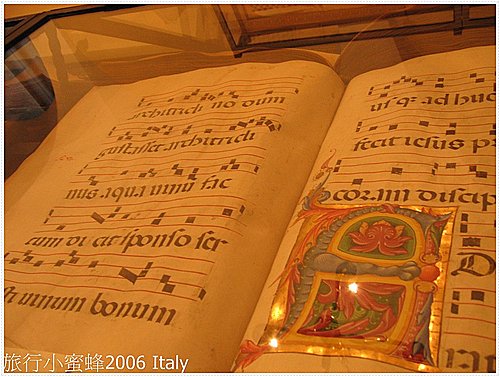 architricli no dum
gustasset architricli
nus aqua uinū fac
tum di cit sponso ser
uinum bonum
usq; ad huc
fecit iesus pr
coram discip
D
旅行小蜜蜂2006 Italy